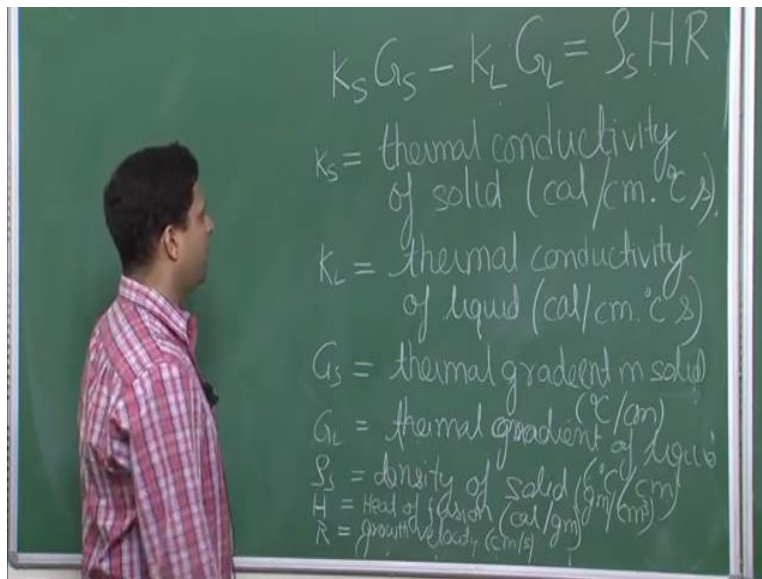 K_S G_S – K_L G_L = ρ_S H R
K_S = thermal conductivity
of solid (cal/cm.°C s).
K_L = thermal conductivity
of liquid (cal/cm.°C s)
G_S = thermal gradient in solid
(°C/cm)
G_L = thermal gradient of liquid
(°C/cm)
ρ_S = density of solid (gm/cm³)
H = Heat of fusion (cal/gm)
R = growth velocity (cm/s)